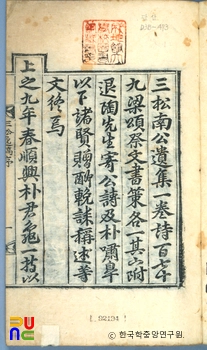 三松南公遺集一卷詩百七十
九梁頌祭文書策各其一附
退陶先生寄公詩及朴嘯皐
以下諸賢贈酬輓誄稱述等
文終焉
上之九年春順興朴君龜一 以
[ 92134 ]
© 한국학중앙연구원